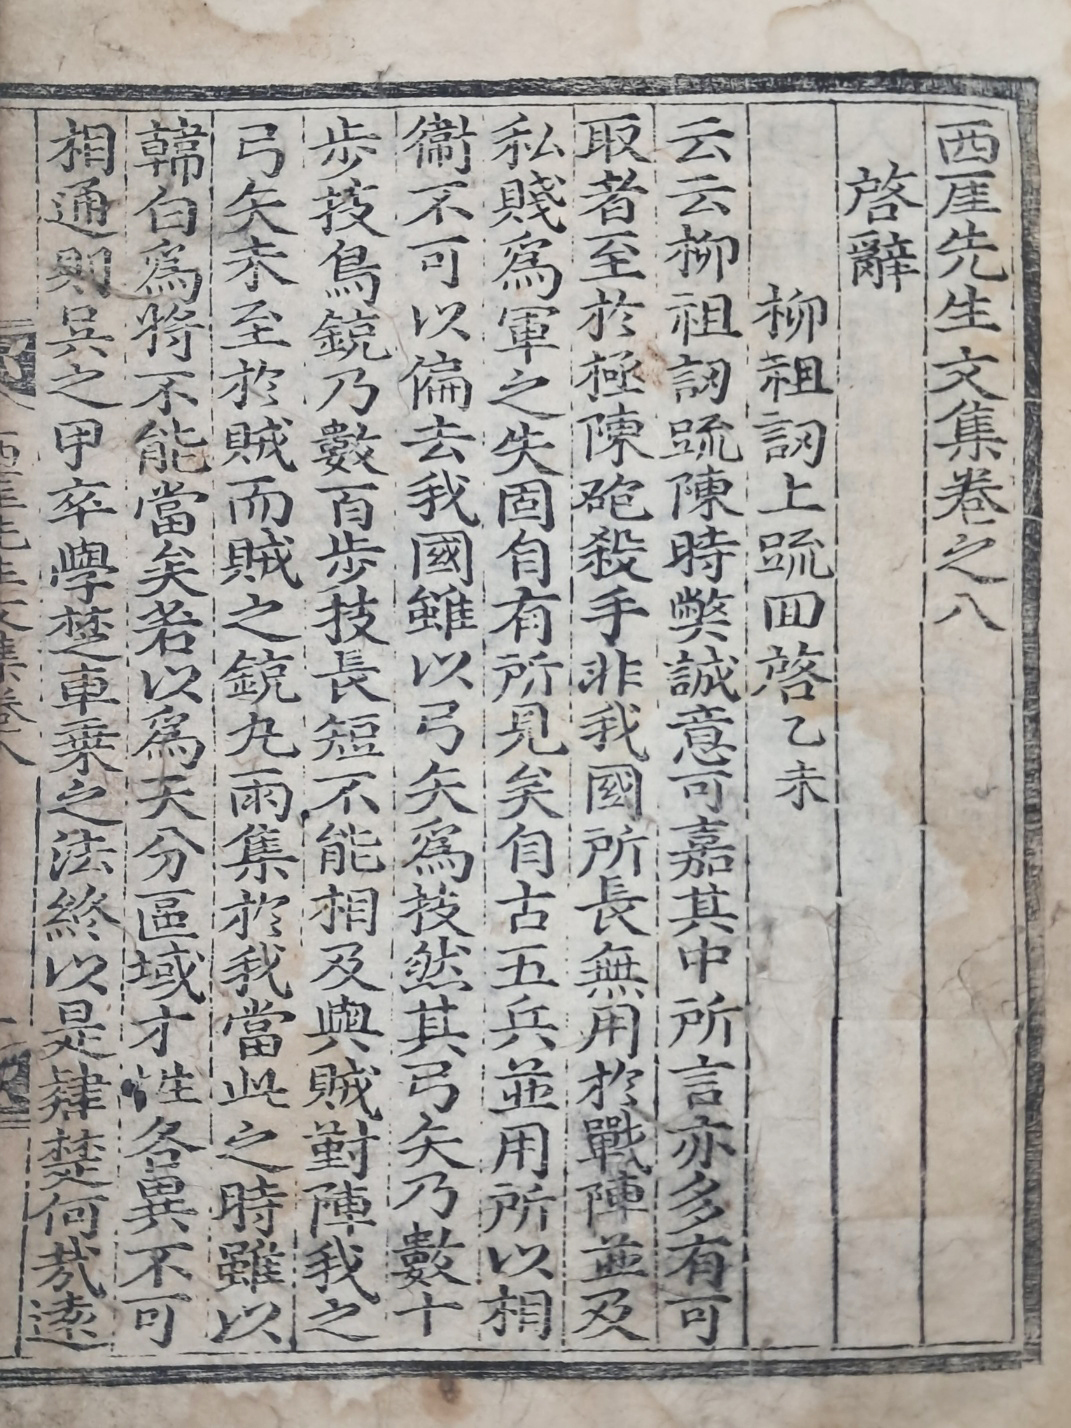 西厓先生文集卷之八
啓辭
柳祖訒上疏回啓乙未
云云柳祖訒疏陳時弊誠意可嘉其中所言亦多有可
取者至於極陳砲殺手非我國所長無用於戰陣並及
私賤爲軍之失固自有所見矣自古五兵並用所以相
衞不可以偏去我國雖以弓矢爲技然其弓矢乃數十
步技鳥銃乃數百步技長短不能相及與賊對陣我之
弓矢未至於賊而賊之銃丸雨集於我當此之時雖以
韓白爲將不能當矣若以爲天分區域才性各異不可
相通則吳之甲卒學楚車乗之法終以是肄楚何哉遠
西厓先生文集卷八